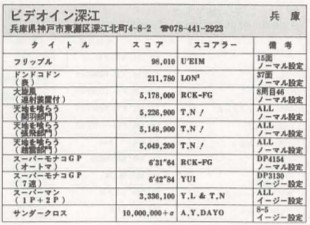 ビデオイン深江 兵庫
兵庫県神戸市東灘区深江北町4-8-2 ☎078-441-2923
タイトル スコア スコアラー 備考
フリップル 98,010 U'EIM 15面 ノーマル設定
ドンドコドン(表) 211,780 LON² 37面 ノーマル設定
大旋風(連射装置付) 5,178,000 RCK-FG 8周目46 ノーマル設定
天地を喰らう(関羽部門) 5,226,900 T.N! ALL ノーマル設定
天地を喰らう(張飛部門) 5,148,900 T.N! ALL ノーマル設定
天地を喰らう(趙雲部門) 5,049,200 T.N! ALL ノーマル設定
スーパーモナコGP(オートマ) 6'31"64 RCK-FG DP4154 ノーマル設定
スーパーモナコGP(7速) 6'42"84 YUI DP3130 イージー設定
スーパーマン(1P+2P) 3,336,100 Y.L & T.N ALL イージー設定
サンダークロス 10,000,000+α A.Y.DAYO 8-5 イージー設定